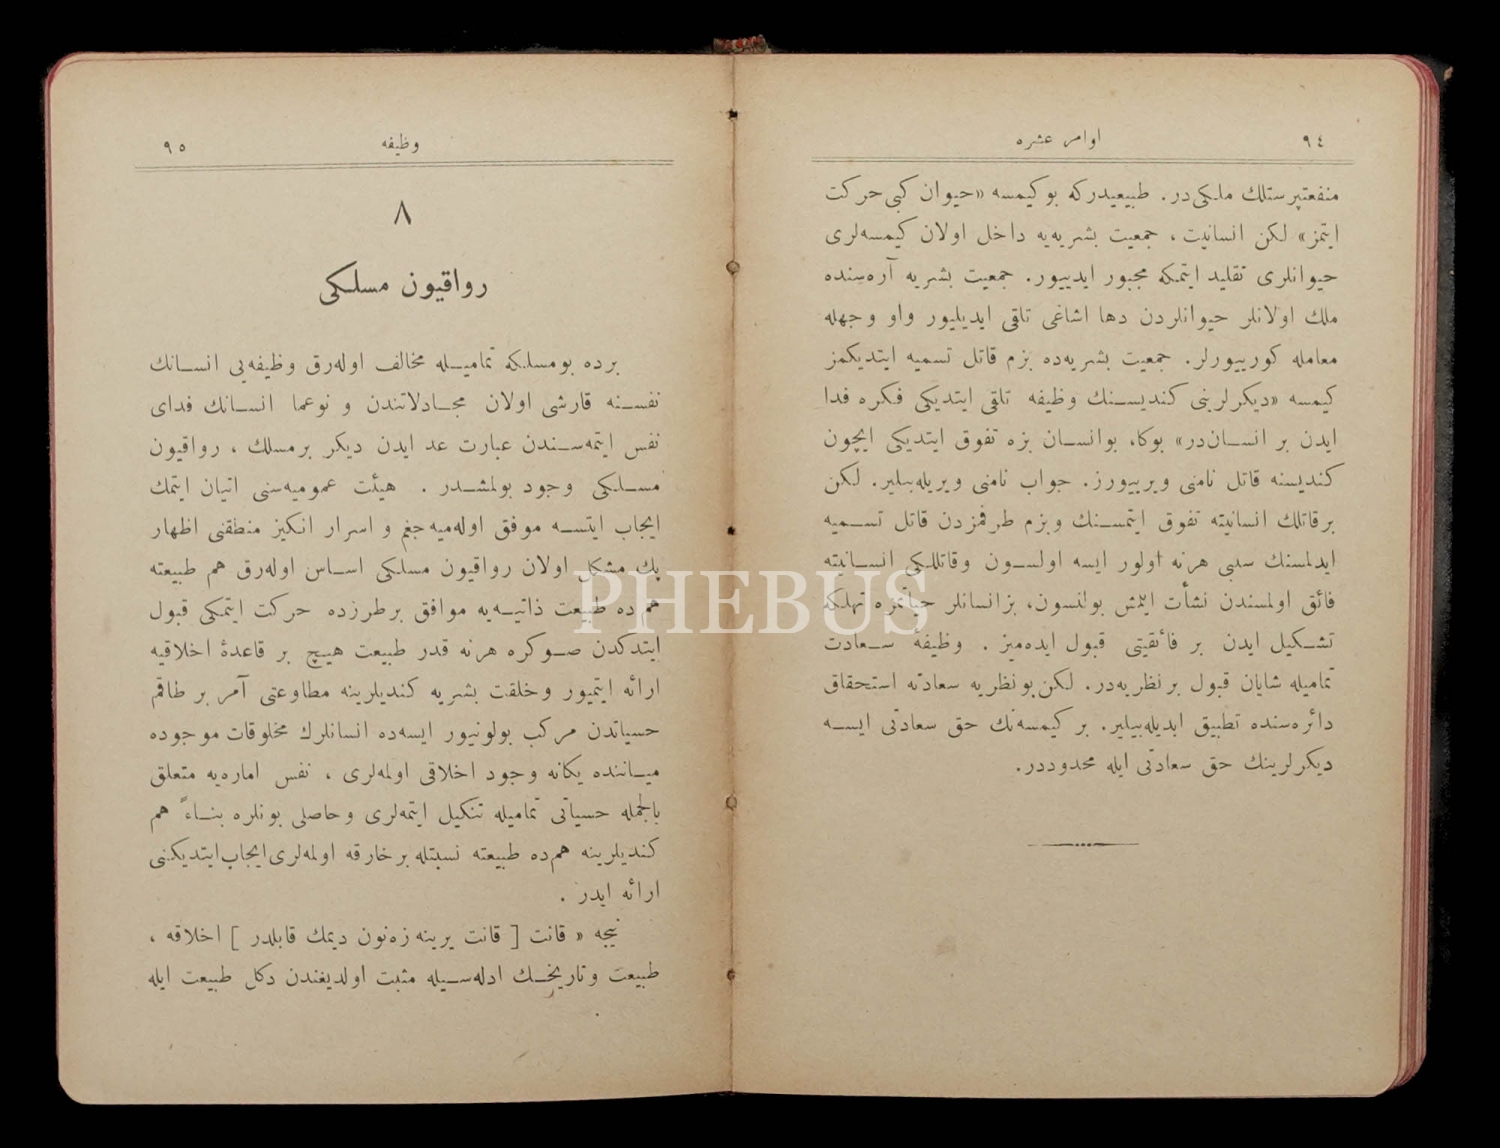 ٩٤
اوامر عشره
منفعتپرستلك ملكى در. طبيعيدركه بو كيمسه «حيوان كبى حركت
ايتمز» لكن انسانيت، جمعيت بشريه يه داخل اولان كيمسه لرى
حيوانلرى تقليد ايتمكه مجبور ايدييور. جمعيت بشريه آره سنده
ملك اولانلر حيوانلردن دها اشاغى تلقى ايديليور واو وجهله
معامله كورييورلر. جمعيت بشريه ده بزم قاتل تسميه ايتديكمز
كيمسه «ديكرلرينى كنديسنك وظيفه تلقى ايتديكى فكره فدا
ايدن بر انسان در» بوكا، بوانسان بزه تفوق ايتديكى ايچون
كنديسنه قاتل نامنى ويرييورز. جواب نامنى ويريله بيلير. لكن
برقاتلك انسانيته تفوق ايتمسنك وبزم طرفمزدن قاتل تسميه
ايدلمسنك سببى هرنه اولور ايسه اولسون وقاتللكى انسانيته
فائق اولمسندن نشأت ايتمش بولنسون، بزانسانلر حياتمزه تهلكه
تشكيل ايدن بر فائقيتى قبول ايده ميز . وظيفهٔ سعادت
تماميله شايان قبول بر نظريه در. لكن بو نظريه سعادته استحقاق
دائره سنده تطبيق ايديله بيلير. بر كيمسه نك حق سعادتى ايسه
ديكرلرينك حق سعادتى ايله محدوددر.
وظيفه
٩٥
٨
رواقيون مسلكى
برده بومسلكه تماميله مخالف اوله رق وظيفه يى انسانك
نفسنه قارشى اولان مجادلاتندن و نوعما انسانك فداى
نفس ايتمه سندن عبارت عد ايدن ديكر برمسلك ، رواقيون
مسلكى وجود بولمشدر . هيئت عموميه سنى اتيان ايتمك
ايجاب ايتسه موفق اوله ميه جغم و اسرار انكيز منطقنى اظهار
پك مشكل اولان رواقيون مسلكى اساس اوله رق هم طبيعته
هم ده طبيعت ذاتيه يه موافق برطرزده حركت ايتمكى قبول
ايتدكدن صوكره هرنه قدر طبيعت هيچ بر قاعدهٔ اخلاقيه
ارائه ايتميور وخلقت بشريه كنديلرينه مطاوعتى آمر بر طاقم
حسياتدن مركب بولونيور ايسه ده انسانلرك مخلوقات موجوده
ميـاننده يكانه وجود اخلاقى اولمه لرى ، نفس اماره يه متعلق
بالجمله حسياتى تماميله تنكيل ايتمه لرى وحاصلى بونلره بناءً هم
كنديلرينه هم ده طبيعته نسبتله بر خارقه اولمه لرى ايجاب ايتديكنى
ارائه ايدر .
نيچه « قانت [ قانت يرينه زه نون ديمك قابلدر ] اخلاقه ،
طبيعت وتاريخك ادله سيله مثبت اولديغندن دكل طبيعت ايله
PHEBUS